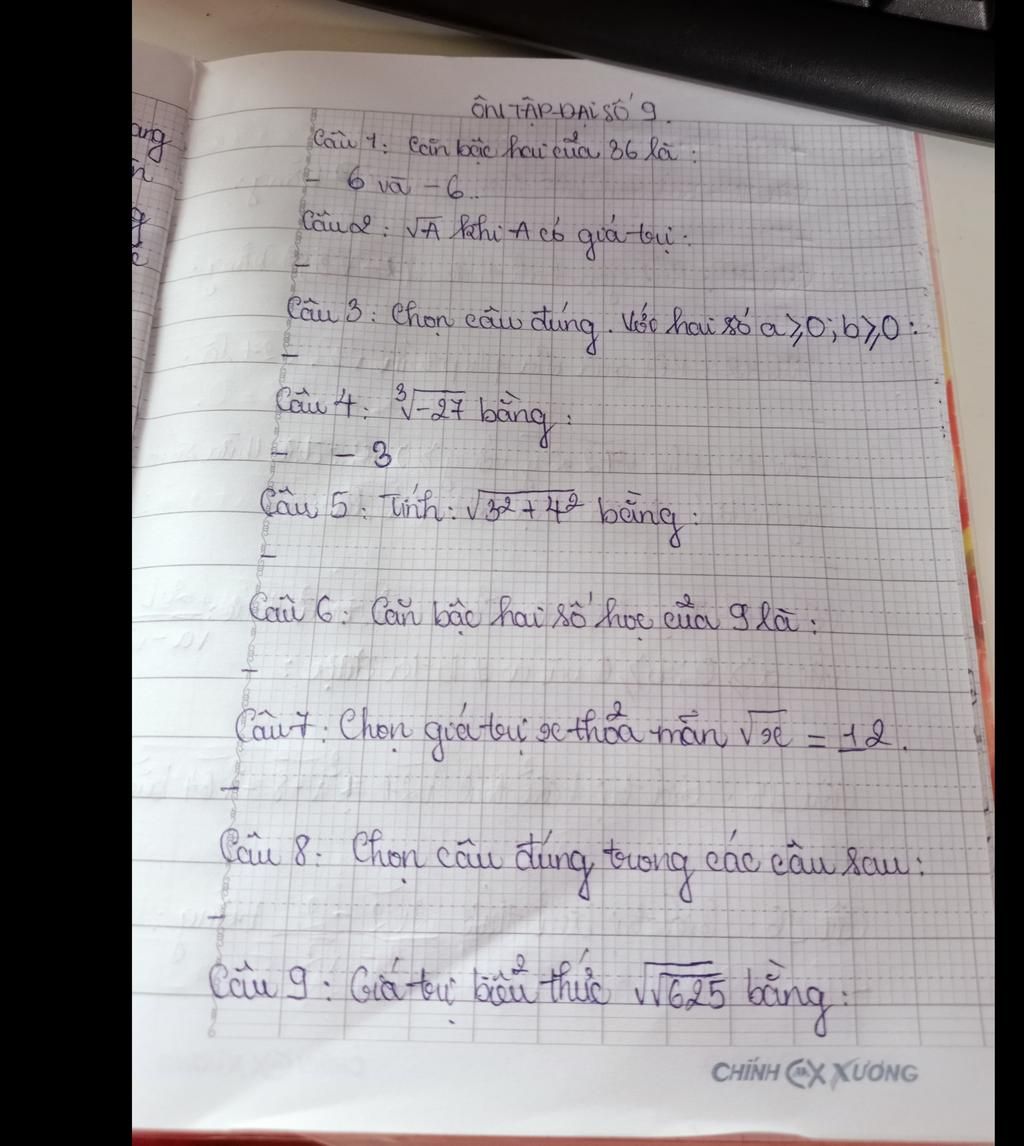 ang
n
g
ÔN TẬP-ĐẠI SỐ 9.
Câu 1: Căn bậc hai của 36 là:
- 6 và -6..
Câu 2: √A khi A có giá trị:
-
Câu 3: Chọn câu đúng. Với hai số a⩾0; b⩾0:
-
Câu 4: ∛-27 bằng:
- -3
Câu 5: Tính: √3²+4² bằng:
-
Câu 6: Căn bậc hai số học của 9 là:
-
Câu 7: Chọn giá trị x thỏa mãn √x = 12.
-
Câu 8: Chọn câu đúng trong các câu sau:
-
Câu 9: Giá trị biểu thức √√625 bằng:
CHÍNH XƯƠNG